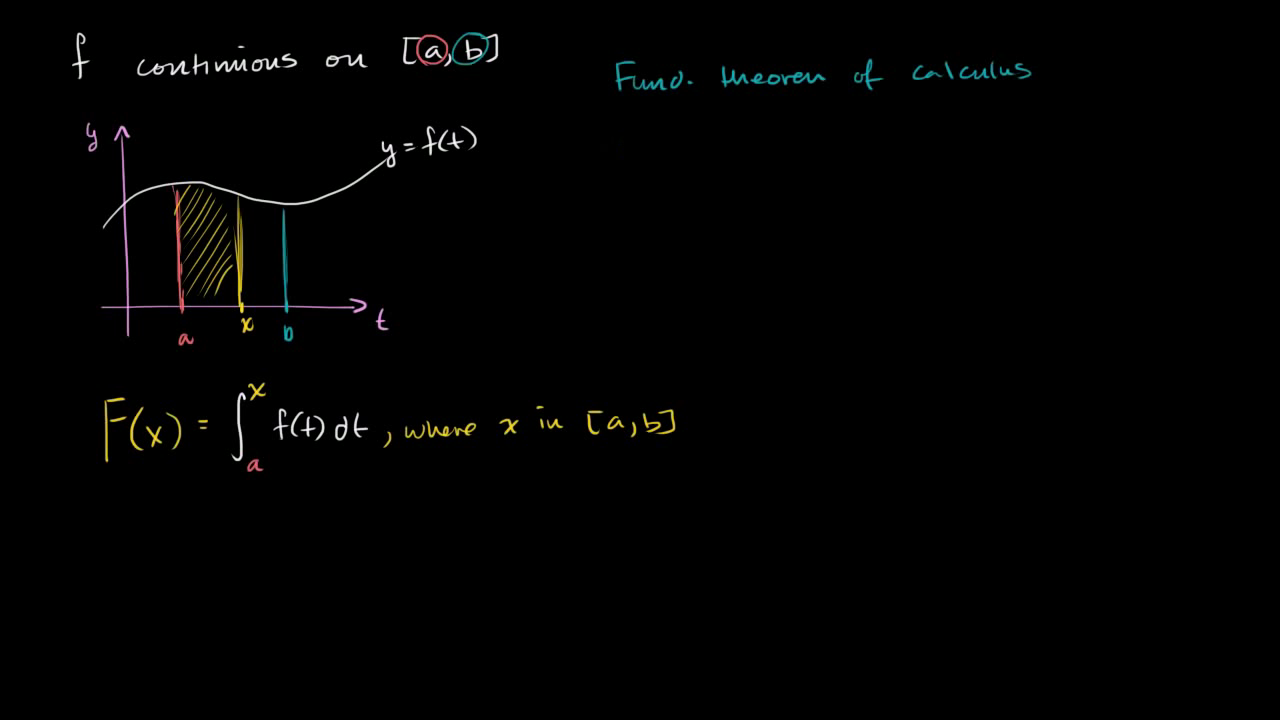 f continuous on [a, b]
Fund. theorem of calculus
y
y = f(t)
a
x
b
t
F(x) = ∫ₐˣ f(t) dt, where x in [a, b]